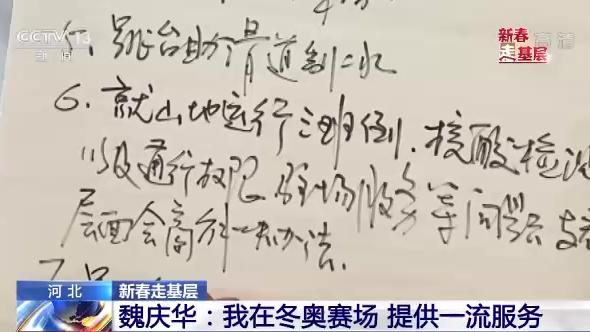 CCTV 13
新闻
新春
走基层
高清
跳台助滑道制冰
6.就山地运行三班倒.核酸检测
以及通行权限、驻场服务等问题
层面会商 办法.
河北
新春走基层
魏庆华：我在冬奥赛场 提供一流服务